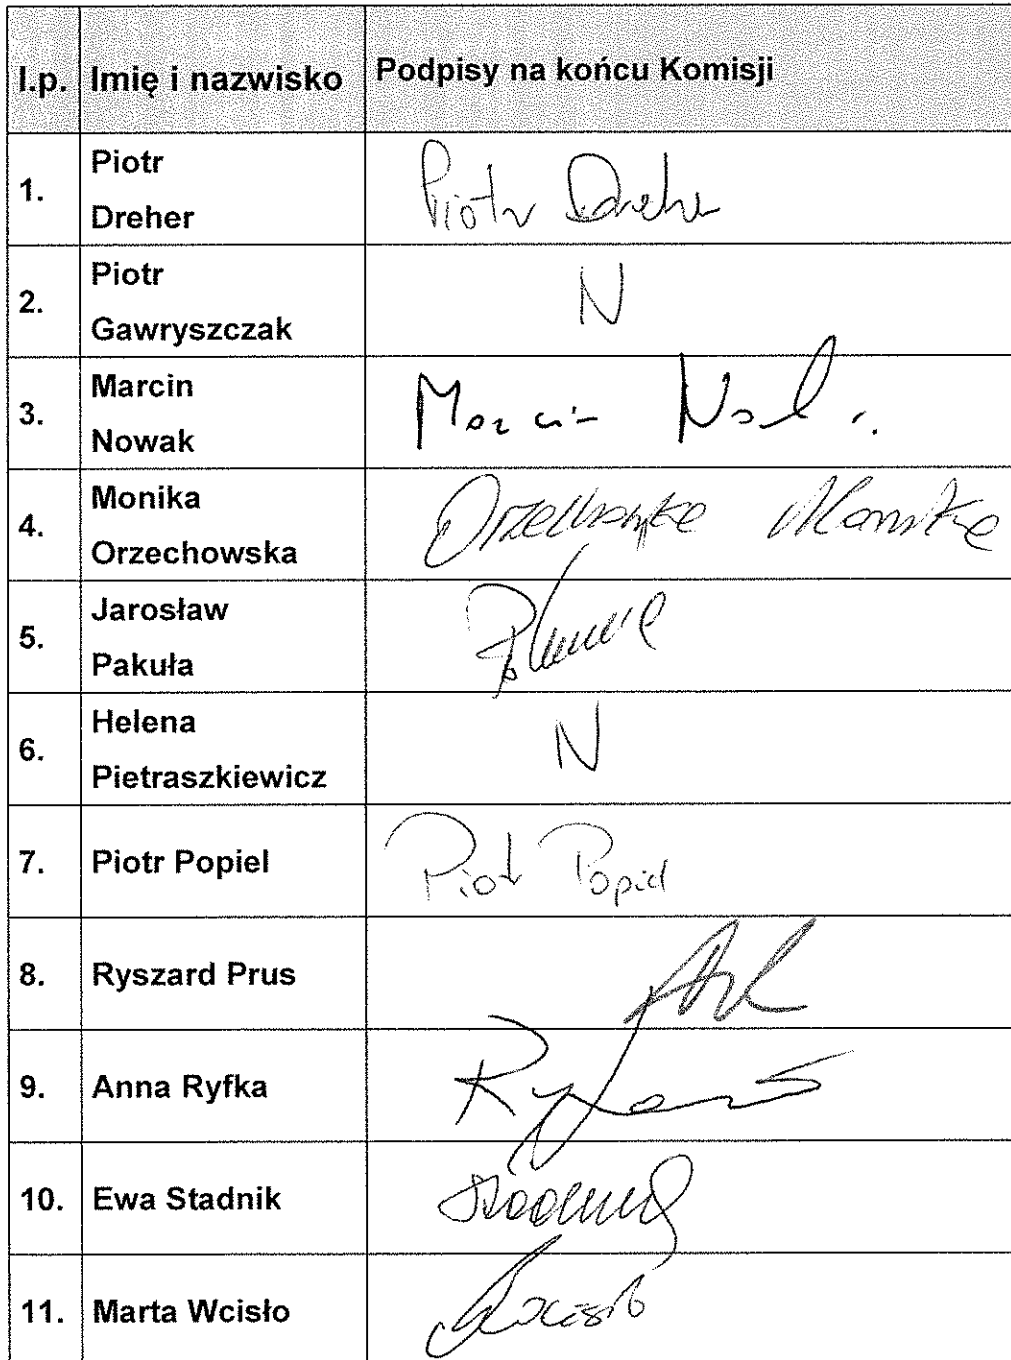 l.p. Imię i nazwisko Podpisy na końcu Komisji
1. Piotr Dreher Piotr Dreher
2. Piotr Gawryszczak N
3. Marcin Nowak Marcin Nowak
4. Monika Orzechowska Orzechowska Monika
5. Jarosław Pakuła
6. Helena Pietraszkiewicz N
7. Piotr Popiel Piotr Popiel
8. Ryszard Prus
9. Anna Ryfka
10. Ewa Stadnik
11. Marta Wcisło